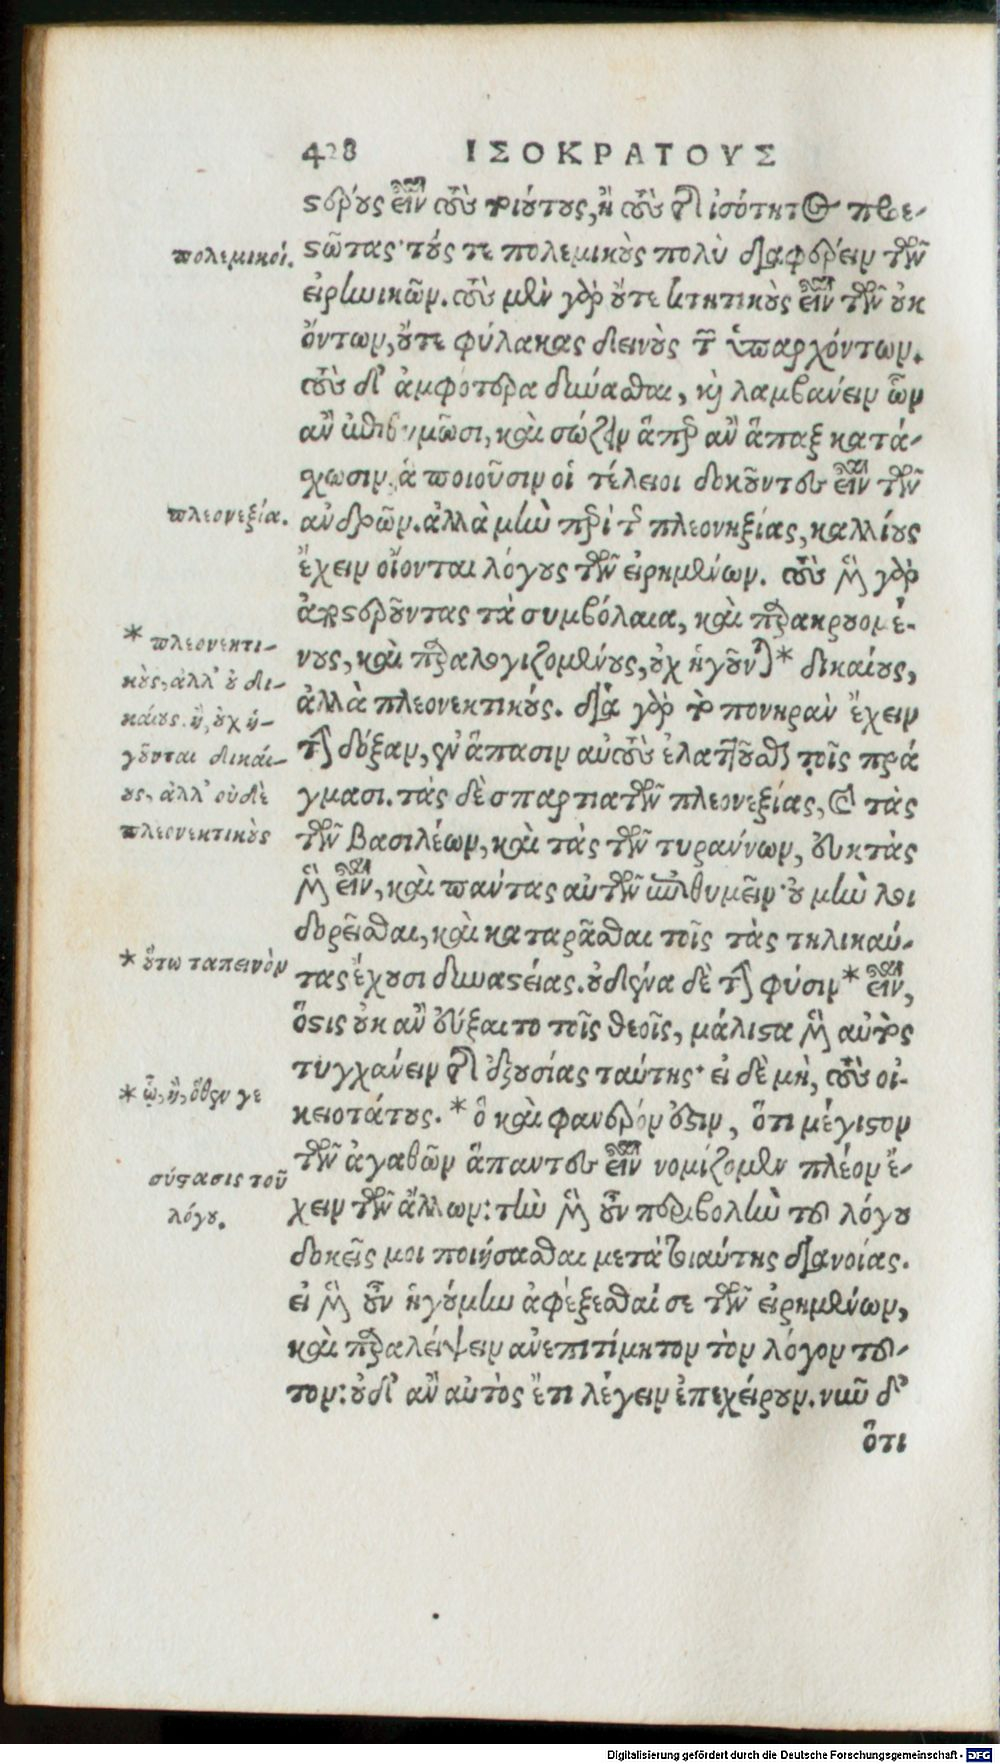 428 ΙΣΟΚΡΑΤΟΥΣ
στέρους εἶναι τοὺς τοιούτους, ἢ τοὺς τῆς ἰσότητος προε-
στῶτας· τούς τε πολεμικοὺς πολὺ διαφέρειν τῶν
πολεμικοί.
εἰρηνικῶν. τοὺς μὲν γὰρ οὔτε κτητικοὺς εἶναι τῶν οὐκ
ὄντων, οὔτε φύλακας δεινοὺς τῶν ὑπαρχόντων.
τοὺς δ' ἀμφότερα δύνασθαι, καὶ λαμβάνειν ὧν
ἂν ἐπιθυμῶσι, καὶ σώζειν ἅπερ ἂν ἅπαξ κατά-
χωσιν. ἃ ποιοῦσιν οἱ τέλειοι δοκοῦντες εἶναι τῶν
ἀνδρῶν. ἀλλὰ μὴν περὶ τῆς πλεονηξίας, καλλίους
πλεονεξία.
ἔχειν οἴονται λόγους τῶν εἰρημένων. τοὺς μὲν γὰρ
ἀποστεροῦντας τὰ συμβόλαια, καὶ παρακρουομέ-
νους, καὶ παραλογιζομένους, οὐχ ἡγοῦνται* δικαίους,
* πλεονεκτι-
κοὺς, ἀλλ' οὐ δι-
καίους. ἢ, οὐχ ἡ-
γοῦνται δικαί-
ους, ἀλλ' οὐδὲ
πλεονεκτικοὺς
ἀλλὰ πλεονεκτικούς. διὰ γὰρ τὸ πονηρὰν ἔχειν
τὴν δόξαν, ἐν ἅπασιν αὐτοὺς ἐλαττοῦσθαι τοῖς πρά
γμασι. τὰς δὲ σπαρτιατῶν πλεονεξίας, καὶ τὰς
τῶν βασιλέων, καὶ τὰς τῶν τυράννων, εὐκτὰς
μὲν εἶναι, καὶ πάντας αὐτῶν ἐπιθυμεῖν· οὐ μὴν λοι
δορεῖσθαι, καὶ καταρᾶσθαι τοῖς τὰς τηλικαύ-
τας ἔχουσι δυναστείας. οὐδένα δὲ τὴν φύσιν* εἶναι,
* οὕτω ταπεινὸν
ὅστις οὐκ ἂν εὔξαιτο τοῖς θεοῖς, μάλιστα μὲν αὐτὸς
τυγχάνειν τῆς ἐξουσίας ταύτης· εἰ δὲ μὴ, τοὺς οἰ-
κειοτάτους. * ὃ καὶ φανερόν ἐστιν, ὅτι μέγιστον
* ᾧ, ἢ, ὅθεν γε
τῶν ἀγαθῶν ἅπαντες εἶναι νομίζομεν πλέον ἔ-
χειν τῶν ἄλλων: τὴν μὲν οὖν περιβολὴν τοῦ λόγου
σύστασις τοῦ
λόγου.
δοκεῖς μοι ποιήσασθαι μετὰ τοιαύτης διανοίας.
εἰ μὲν οὖν ἡγούμην ἀφέξεσθαί σε τῶν εἰρημένων,
καὶ παραλείψειν ἀνεπιτίμητον τὸν λόγον τοῦ-
τον: οὐδ' ἂν αὐτὸς ἔτι λέγειν ἐπεχείρουν. νῦν δ'
ὅτι
Digitalisierung gefördert durch die Deutsche Forschungsgemeinschaft - DFG